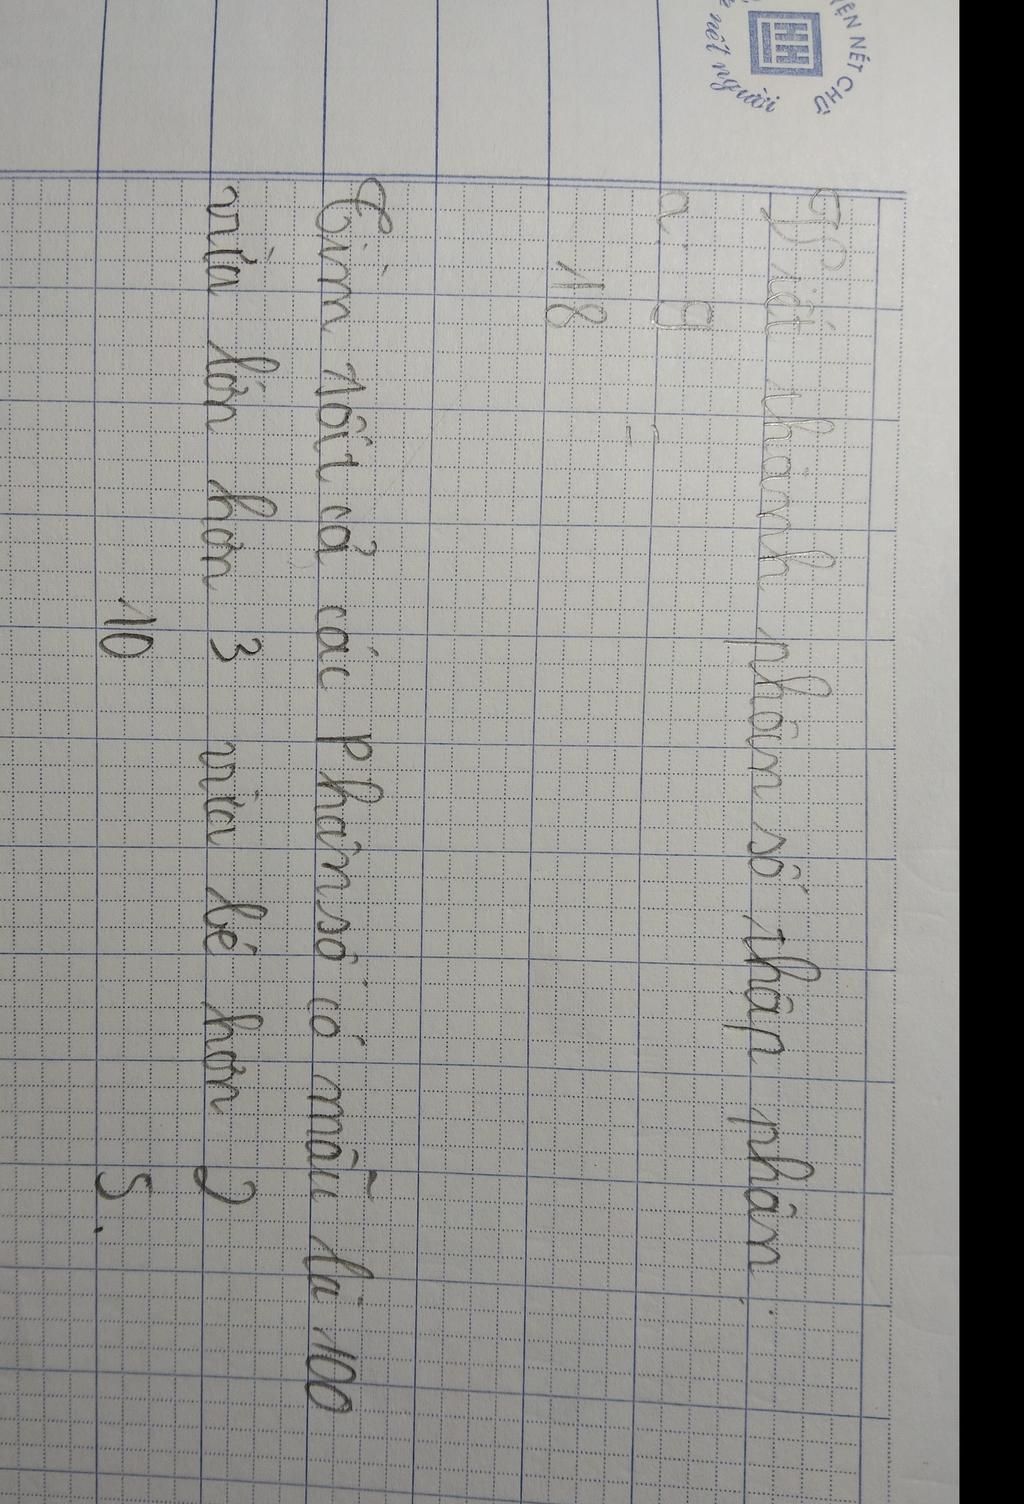 ỆN NÉT CHỮ
nết người
Viết thành phân số thập phân:
a. 9 =
18
Tìm tất cả các phân số có mẫu là 100
vừa lớn hơn 3 vừa bé hơn 2
10 5.